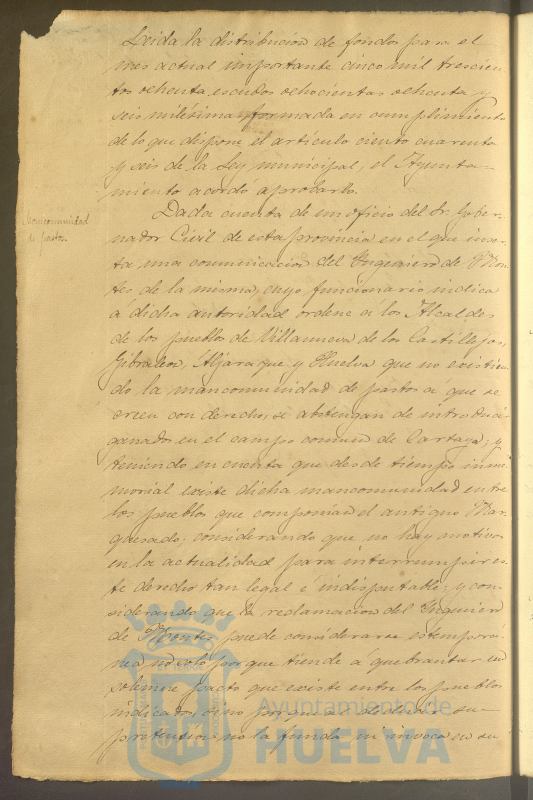 Leida la distribucion de fondos para el
mes actual importante cinco mil trescien-
tos ochenta escudos ochocientas ochenta y
seis milésimas formada en cumplimiento
de lo que dispone el artículo ciento cuarenta
y seis de la Ley municipal, el Ayunta-
miento acordó aprobarla.
Mancomunidad
de pastos.
Dada cuenta de un oficio del Sr. Gober-
nador Civil de esta provincia en el que inser-
ta una comunicacion del Ingeniero de Mon-
tes de la misma, cuyo funcionario indica
á dicha autoridad ordene á los Alcaldes
de los pueblos de Villanueva de los Castillejos,
Gibraleon, Aljaraque y Huelva que no existien-
do la mancomunidad de pastos a que se
creen con derecho, se abstengan de introducir
ganados en el campo comun de Cartaya; y
teniendo en cuenta que desde tiempo inme-
morial existe dicha mancomunidad entre
los pueblos que componian el antiguo Mar-
quesado: considerando que no hay motivos
en la actualidad para interrumpir es-
te derecho tan legal é indisputable; y con-
siderando que la reclamacion del Ingeniero
de Montes puede considerarse estempora-
nea, no solo porque tiende á quebrantar un
solemne pacto que existe entre los pueblos
indicados, sino porque al deducir su
pretension no la funda ni invoca en su
Ayuntamiento de
HUELVA